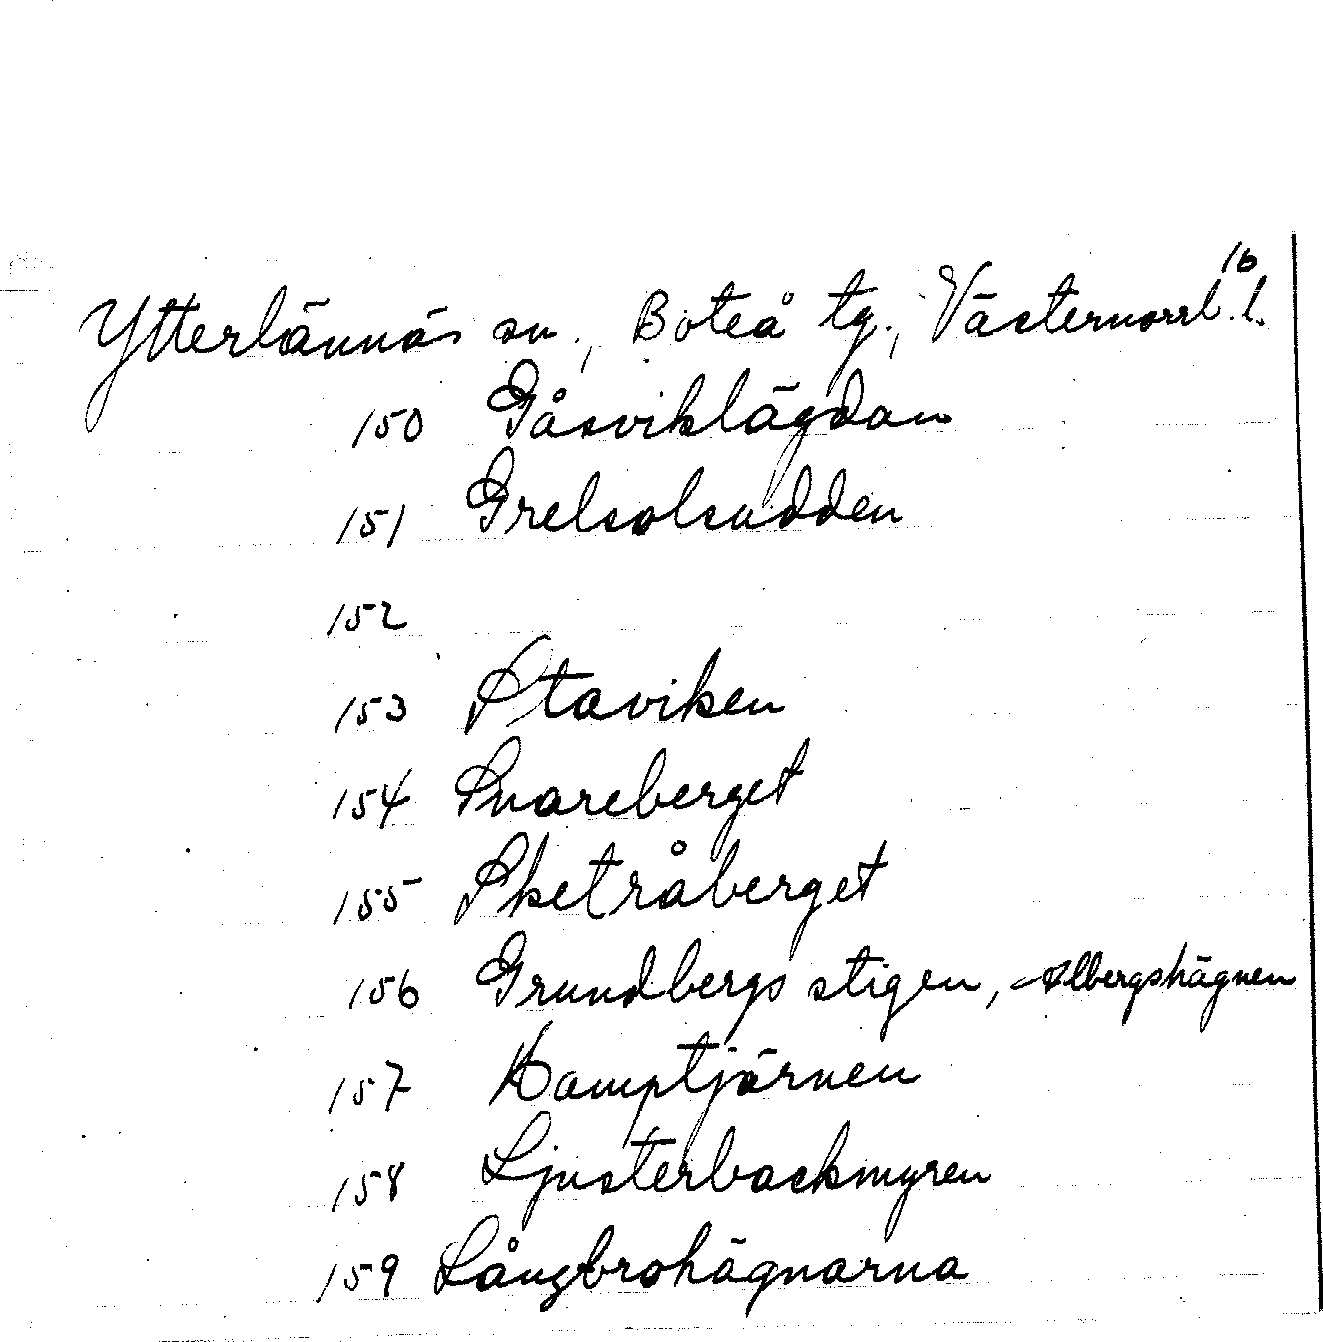 16
Ytterlännäs sn., Boteå tg., Västernorrl. l.
150 Gåsviklägdan
151 Grelsolsudden
152
153 Staviken
154 Snareberget
155 Sketråberget
156 Grundbergs stigen, Albergshägnen
157 Kamptjärnen
158 Ljusterbackmyren
159 Långbrohägnarna